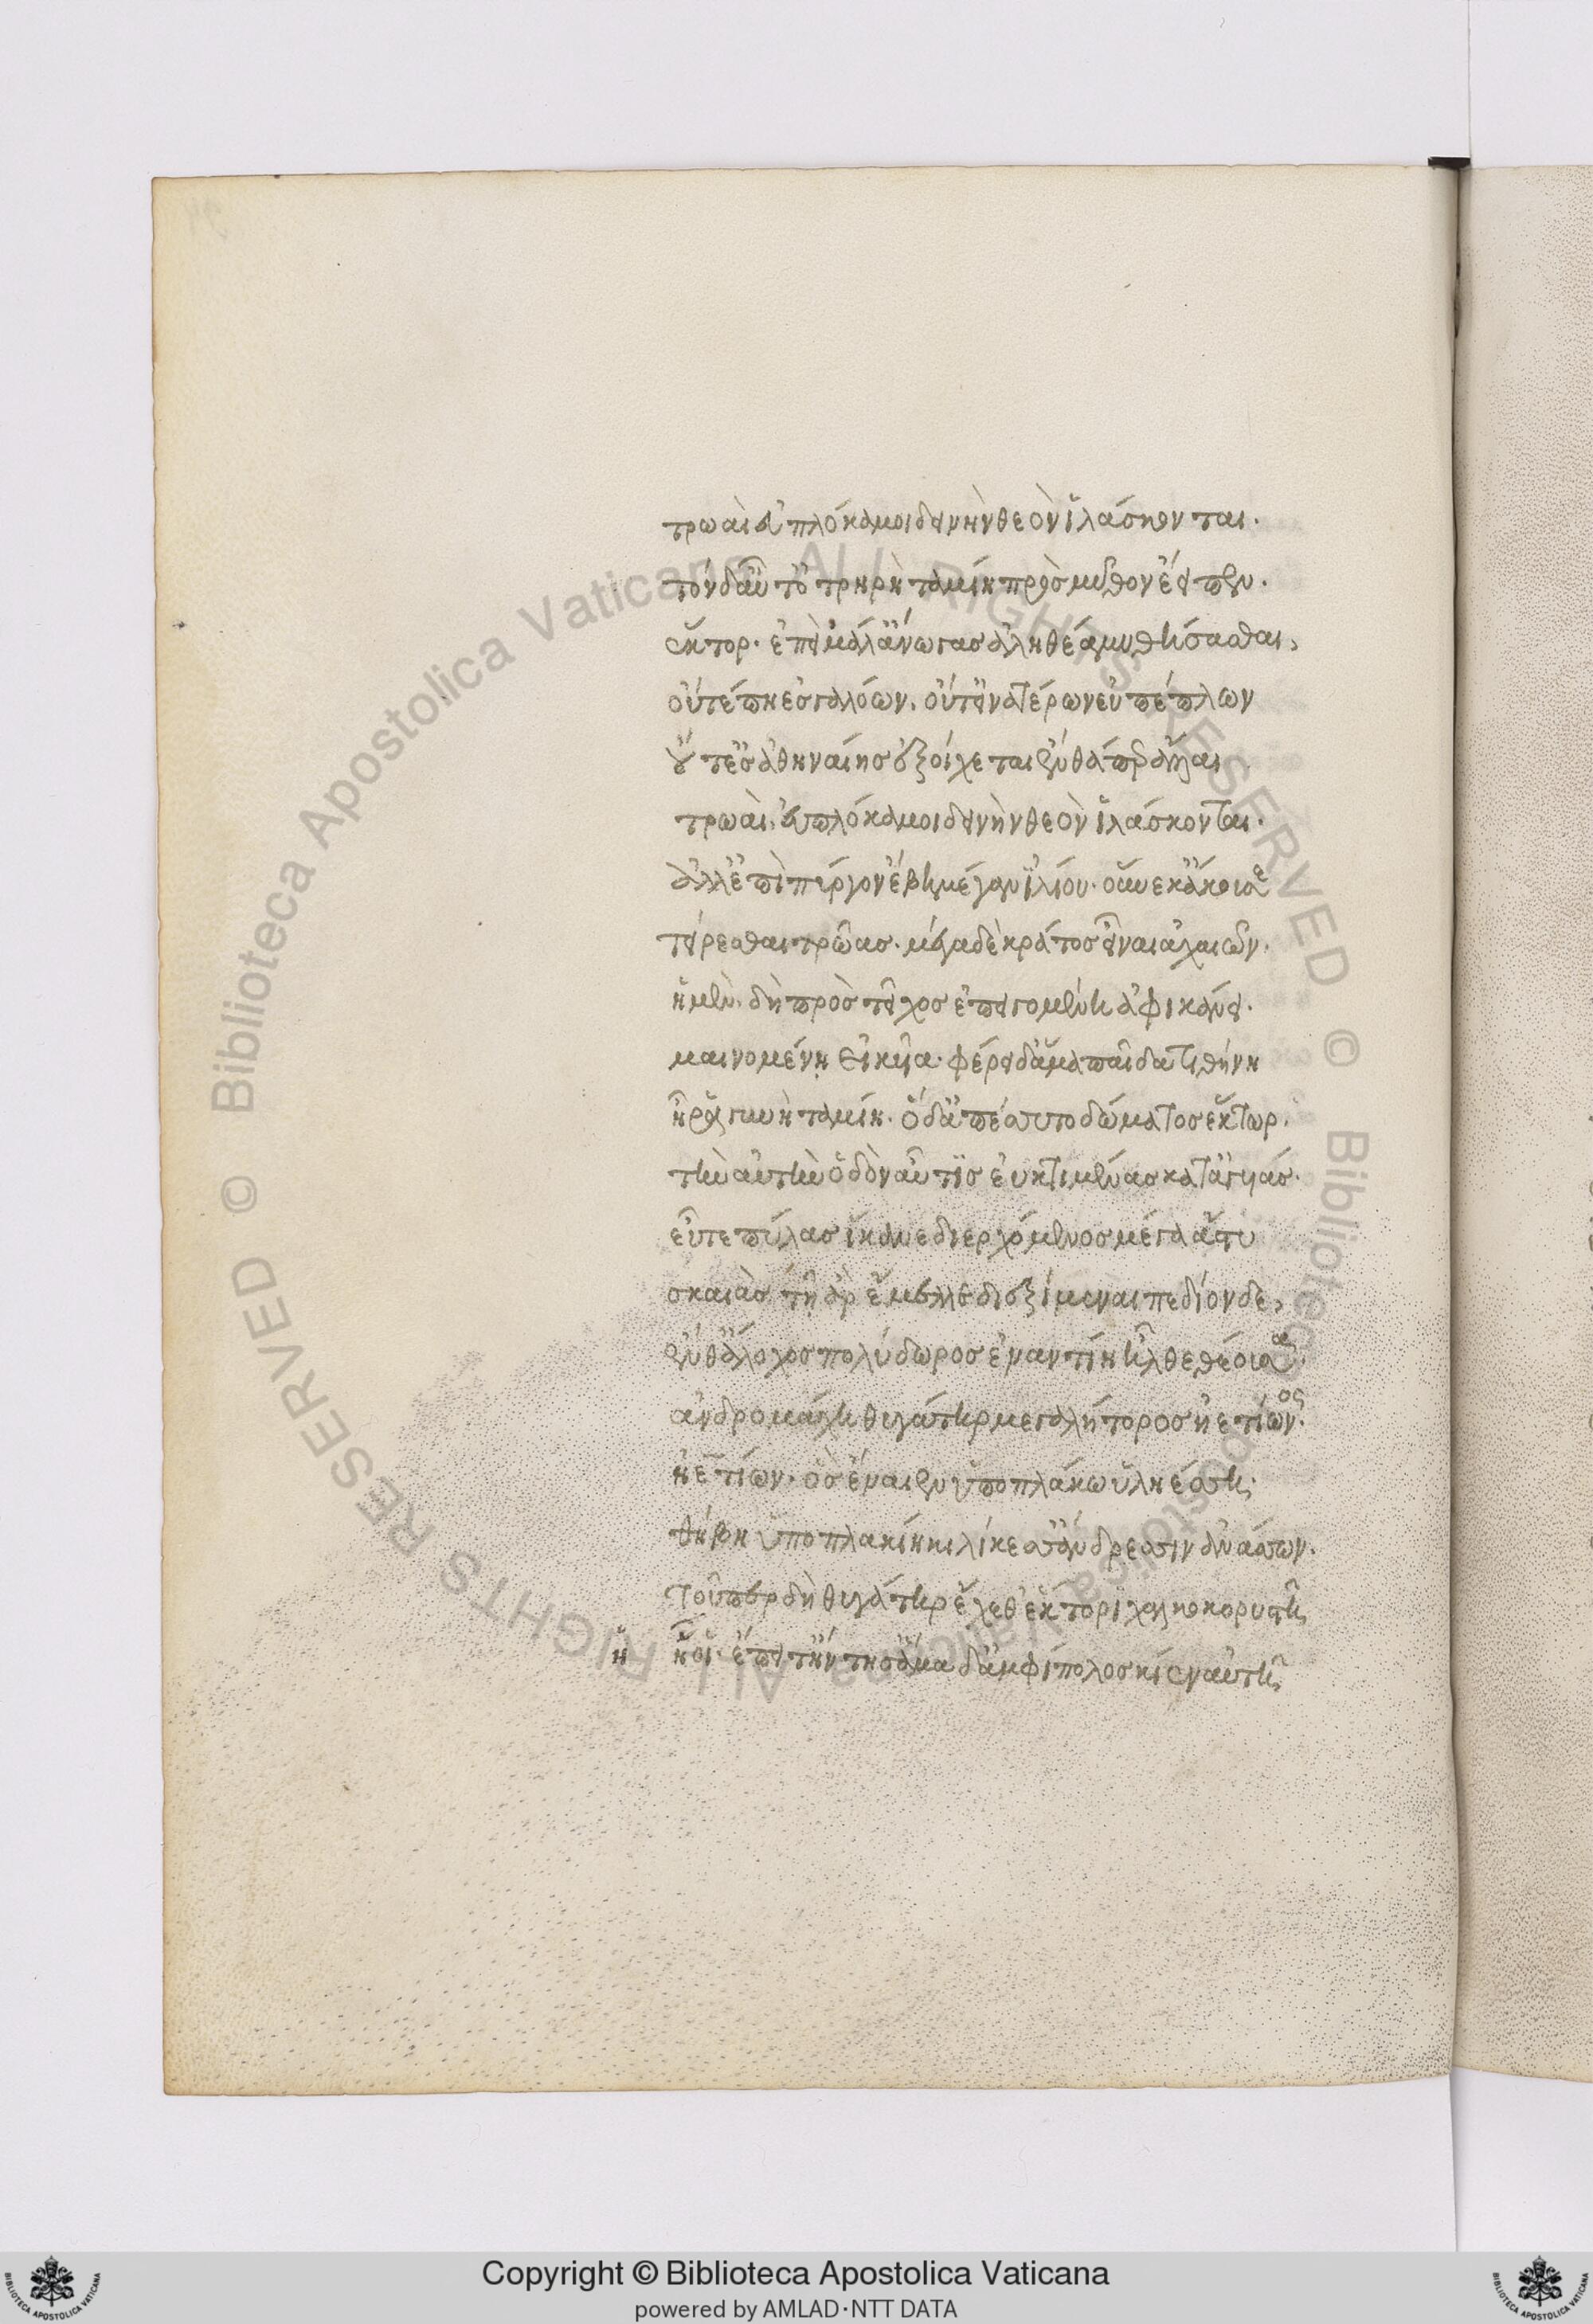 τρωαὶ ἐυπλόκαμοι δεινὴν θεὸν ἱλάσκονται.
τὸν δ' αὖτ' ὀτρηρὴ ταμίη πρὸς μῦθον ἔειπεν.
ἕκτορ. ἐπεὶ μάλ' ἄνωγας ἀληθέα μυθήσασθαι,
οὔτέ πη ἐς γαλόων. οὔτ' εἰνατέρων εὐπέπλων
οὔτ' ἐς ἀθηναίης ἐξοίχεται ἔνθά περ ἄλλαι
τρωαὶ ἐυπλόκαμοι δεινὴν θεὸν ἱλάσκονται.
ἀλλ' ἐπὶ πύργον ἔβη μέγαν ἰλίου. οὕνεκ' ἄκουσε
τείρεσθαι τρῶας. μέγα δὲ κράτος εἶναι ἀχαιῶν.
ἡ μὲν δὴ πρὸς τεῖχος ἐπειγομένη ἀφικάνει.
μαινομένη εἰκυῖα. φέρει δ' ἅμα παῖδα τιθήνη
ἦ ῥα γυνὴ ταμίη. ὁ δ' ἀπέσσυτο δώματος ἕκτωρ.
τὴν αὐτὴν ὁδὸν αὖτις ἐυκτιμένας κατ' ἀγυιάς.
εὖτε πύλας ἵκανε διερχόμενος μέγα ἄστυ
σκαιὰς τῇ ἄρ' ἔμελλε διεξίμεναι πεδίονδε,
ἔνθ' ἄλοχος πολύδωρος ἐναντίη ἦλθε θέουσα.
ἀνδρομάχη θυγάτηρ μεγαλήτορος ἠετίωνος.
ἠετίων. ὃς ἔναιεν ὑπὸ πλάκῳ ὑληέσσῃ.
θήβῃ ὑποπλακίῃ κιλίκεσσ' ἄνδρεσσιν ἀνάσσων.
τοῦ περ δὴ θυγάτηρ ἔχεθ' ἕκτορι χαλκοκορυστῇ
ἥ οἱ ἔπειτ' ἤντησ' ἅμα δ' ἀμφίπολος κίεν αὐτῇ
ἥ
Copyright © Biblioteca Apostolica Vaticana
powered by AMLAD·NTT DATA